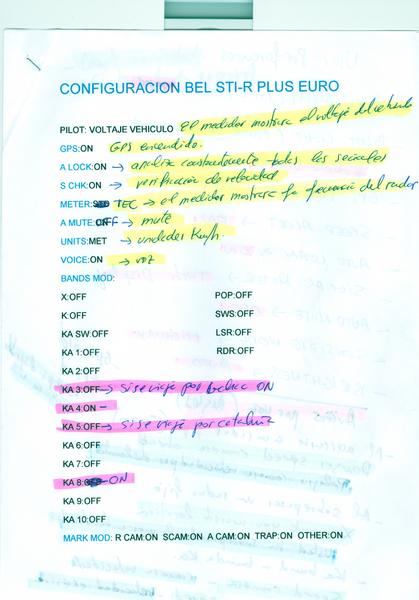 CONFIGURACION BEL STI-R PLUS EURO
PILOT: VOLTAJE VEHICULO El medidor mostrara el voltaje del
GPS:ON GPS encendido.
A LOCK:ON → analiza constantemente todas las señales
S CHK:ON → verificación de velocidad
METER: TEC → el medidor mostrara la frecuencia del radar
A MUTE:OFF → mute
UNITS:MET → unidades Km/h
VOICE:ON → voz
BANDS MOD:
X:OFF POP:OFF
K:OFF SWS:OFF
KA SW:OFF LSR:OFF
KA 1:OFF RDR:OFF
KA 2:OFF
KA 3:OFF → si se viaja por ON
KA 4:ON –
KA 5:OFF → si se viaja por cataluña
KA 6:OFF
KA 7:OFF
KA 8: ON
KA 9:OFF
KA 10:OFF
MARK MOD: R CAM:ON SCAM:ON A CAM:ON TRAP:ON OTHER:ON